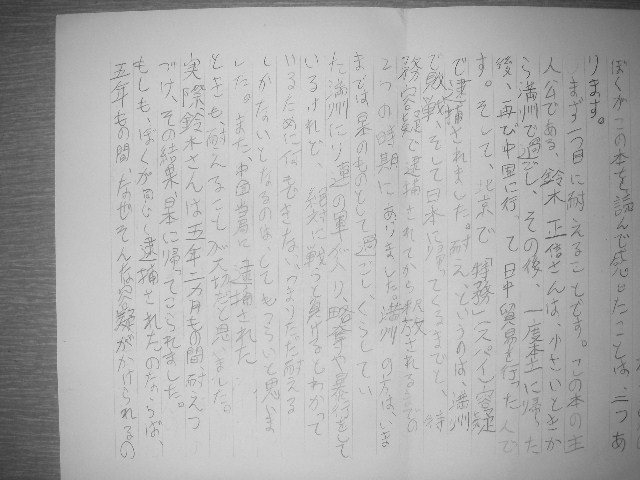 ぼくがこの本を読んで感じたことは、二つあ
ります。
まず一つ目に耐えることです。この本の主
人公である、鈴木正信さんは、小さいときか
ら満州で過ごし、その後、一度本土に帰った
後、再び中国に行って日中貿易を行った人で
す。そして、北京で「特務」(スパイ)容疑
で逮捕されました。耐え、というのは、満州
で敗戦、そして日本に帰ってくるまでと、特
務容疑で逮捕されてから釈放されるまでの
2つの時期にありました。満州の方は、いま
までは日本のものとして過ごし、くらしてい
た満州にソ連の軍が入り、略奪や暴行をして
いるけれど、絶対に戦うと負けるとわかって
いるために何もできない、つまりただ耐える
しかないとなるのは、とてもつらいと思いま
した。また、中国当局に逮捕された
ときも耐えることが大切だと思いました。
実際鈴木さんは五年二カ月もの間耐えつ
づけ、その結果日本に帰ってこられました。
もしも、ぼくが同じく逮捕されたのならば、
五年もの間、なぜそんな容疑がかけられるの